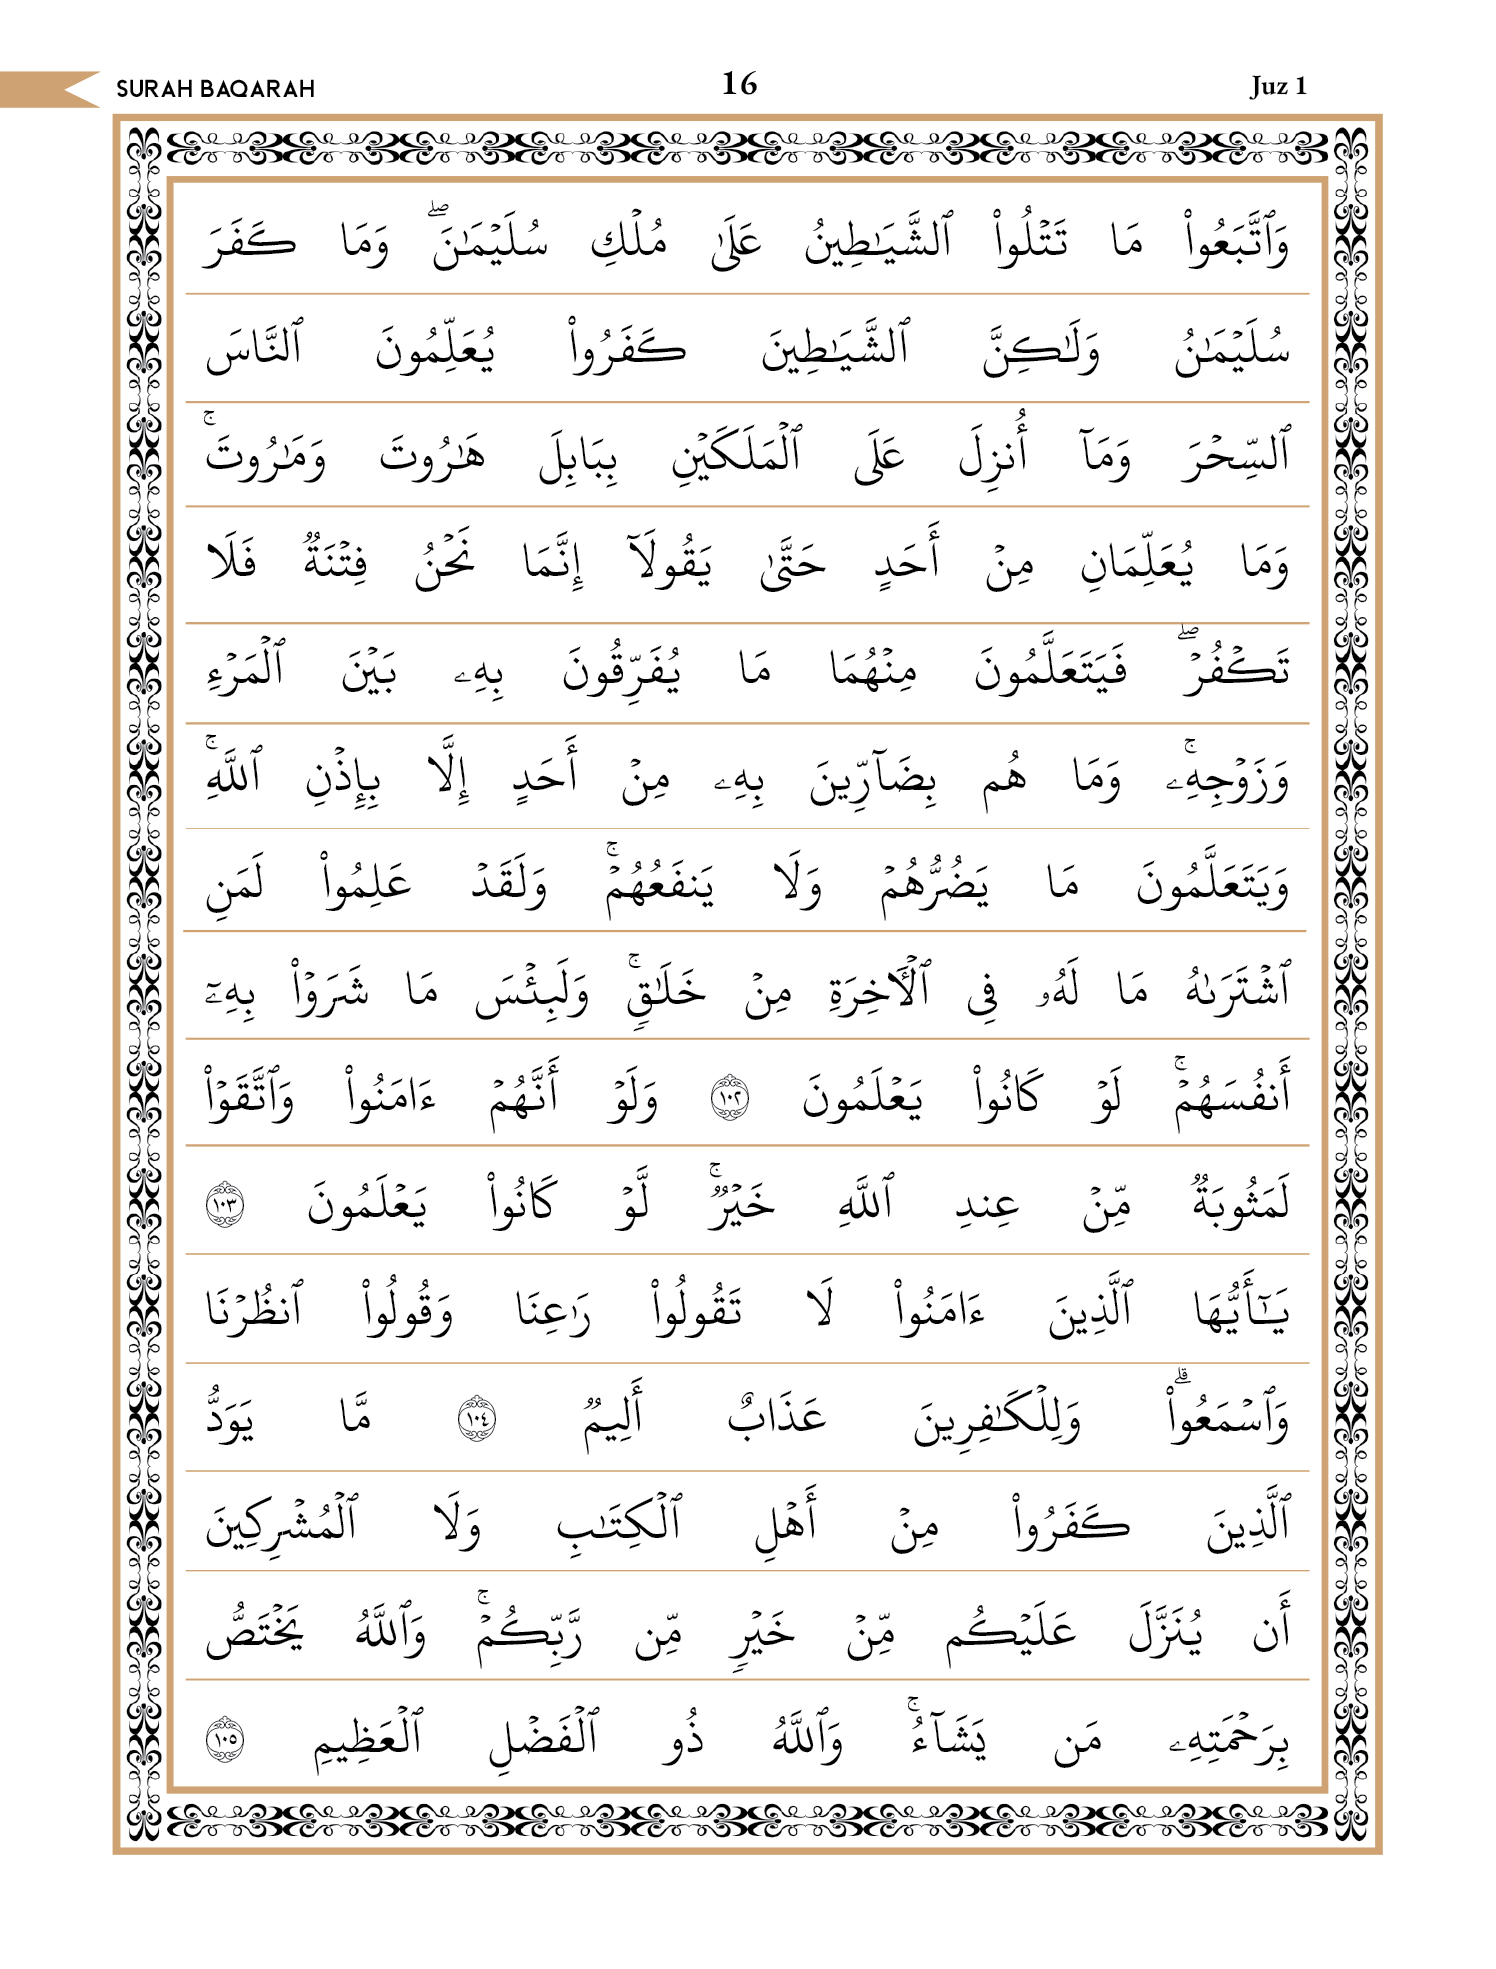 SURAH BAQARAH 16 Juz 1
وَٱتَّبَعُوا۟ مَا تَتْلُوا۟ ٱلشَّيَـٰطِينُ عَلَىٰ مُلْكِ سُلَيْمَـٰنَ ۖ وَمَا كَفَرَ
سُلَيْمَـٰنُ وَلَـٰكِنَّ ٱلشَّيَـٰطِينَ كَفَرُوا۟ يُعَلِّمُونَ ٱلنَّاسَ
ٱلسِّحْرَ وَمَآ أُنزِلَ عَلَى ٱلْمَلَكَيْنِ بِبَابِلَ هَـٰرُوتَ وَمَـٰرُوتَ ۚ
وَمَا يُعَلِّمَانِ مِنْ أَحَدٍ حَتَّىٰ يَقُولَآ إِنَّمَا نَحْنُ فِتْنَةٌ فَلَا
تَكْفُرْ ۖ فَيَتَعَلَّمُونَ مِنْهُمَا مَا يُفَرِّقُونَ بِهِۦ بَيْنَ ٱلْمَرْءِ
وَزَوْجِهِۦ ۚ وَمَا هُم بِضَآرِّينَ بِهِۦ مِنْ أَحَدٍ إِلَّا بِإِذْنِ ٱللَّهِ ۚ
وَيَتَعَلَّمُونَ مَا يَضُرُّهُمْ وَلَا يَنفَعُهُمْ ۚ وَلَقَدْ عَلِمُوا۟ لَمَنِ
ٱشْتَرَىٰهُ مَا لَهُۥ فِى ٱلْـَٔاخِرَةِ مِنْ خَلَـٰقٍ ۚ وَلَبِئْسَ مَا شَرَوْا۟ بِهِۦٓ
أَنفُسَهُمْ ۚ لَوْ كَانُوا۟ يَعْلَمُونَ ١٠٢ وَلَوْ أَنَّهُمْ ءَامَنُوا۟ وَٱتَّقَوْا۟
لَمَثُوبَةٌ مِّنْ عِندِ ٱللَّهِ خَيْرٌ ۚ لَّوْ كَانُوا۟ يَعْلَمُونَ ١٠٣
يَـٰٓأَيُّهَا ٱلَّذِينَ ءَامَنُوا۟ لَا تَقُولُوا۟ رَٰعِنَا وَقُولُوا۟ ٱنظُرْنَا
وَٱسْمَعُوا۟ ۗ وَلِلْكَـٰفِرِينَ عَذَابٌ أَلِيمٌ ١٠٤ مَّا يَوَدُّ
ٱلَّذِينَ كَفَرُوا۟ مِنْ أَهْلِ ٱلْكِتَـٰبِ وَلَا ٱلْمُشْرِكِينَ
أَن يُنَزَّلَ عَلَيْكُم مِّنْ خَيْرٍ مِّن رَّبِّكُمْ ۚ وَٱللَّهُ يَخْتَصُّ
بِرَحْمَتِهِۦ مَن يَشَآءُ ۚ وَٱللَّهُ ذُو ٱلْفَضْلِ ٱلْعَظِيمِ ١٠٥